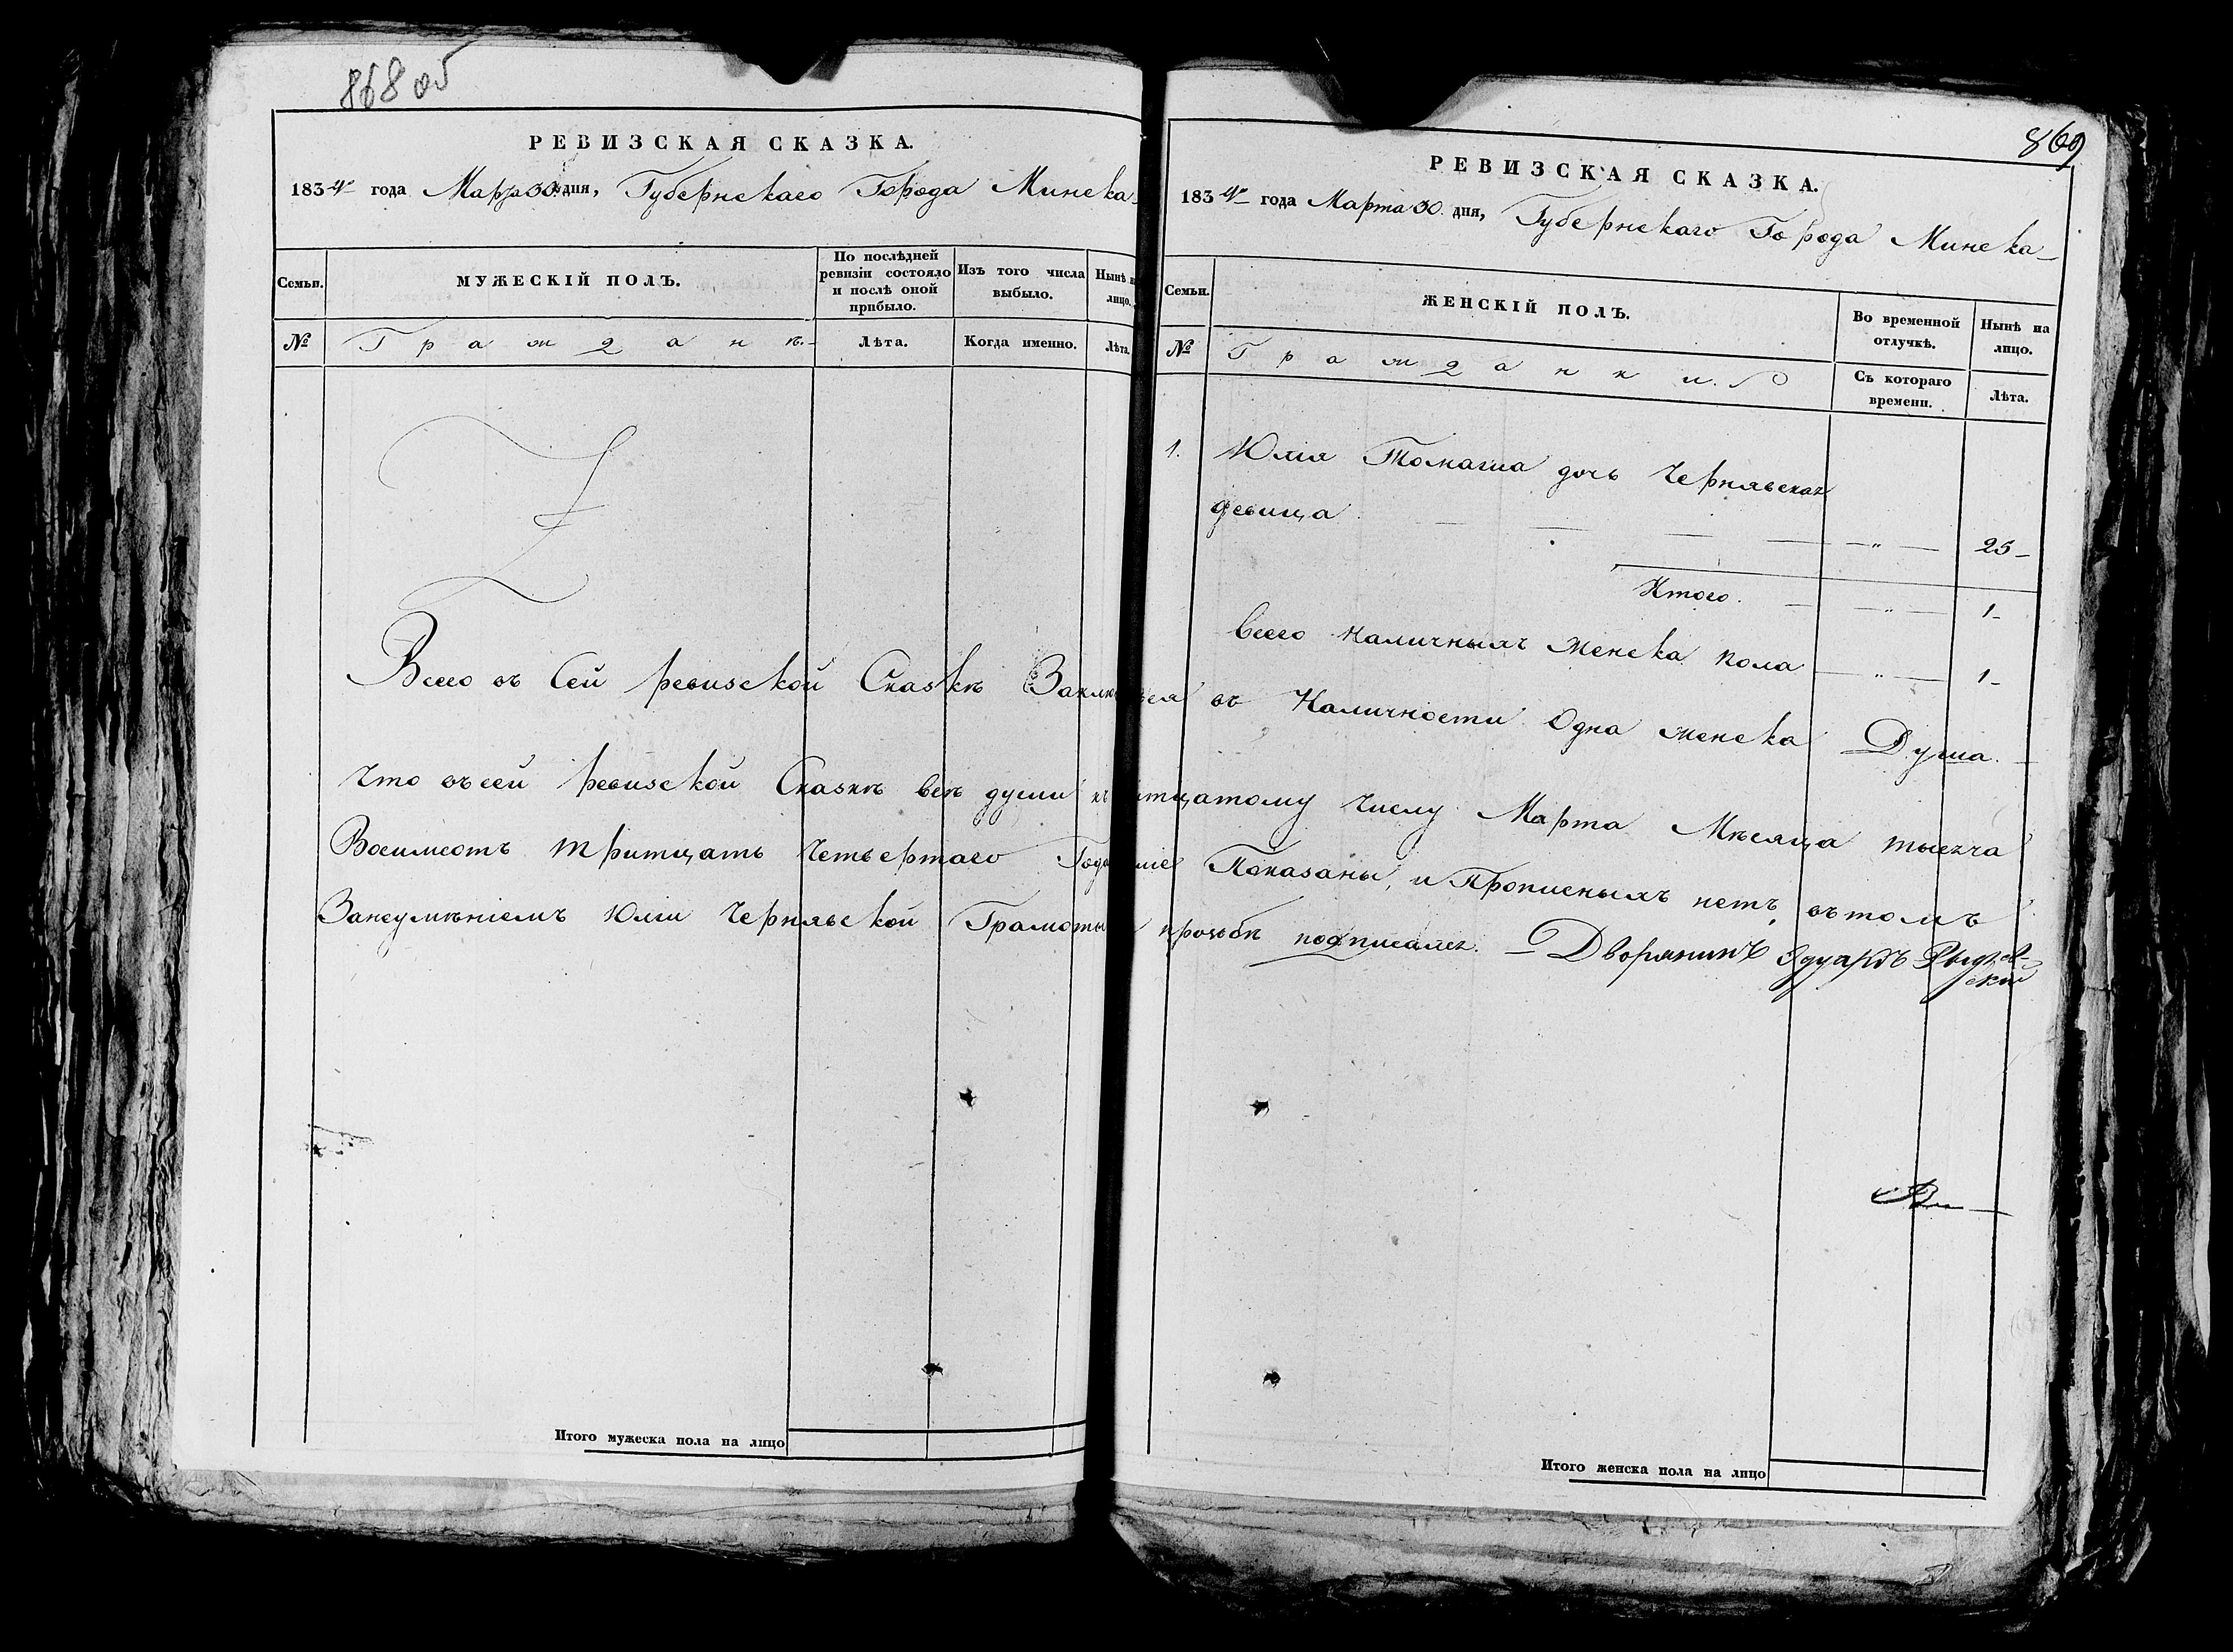 868 об
РЕВИЗСКАЯ СКАЗКА.
1834 года Марта 30 дня, Губернскаго Города Минска
Семьи.
МУЖЕСКІЙ ПОЛЪ.
По послѣдней ревизіи состояло и послѣ оной прибыло.
Изъ того числа выбыло.
Нынѣ на лицо.
№
Гражданъ.
Лѣта.
Когда именно.
Лѣта.
869
РЕВИЗСКАЯ СКАЗКА.
1834 года Марта 30 дня, Губернскаго Города Минска
Семьи.
ЖЕНСКІЙ ПОЛЪ.
Во временной отлучкѣ.
Нынѣ на лицо.
№
Гражданки.
Съ котораго времени.
Лѣта.
1. Юлія Томаша дочь Чернявская
девица 25
Итого. 1
Всего наличныхъ женска пола 1
Всего въ Сей ревизской Сказкѣ въ Наличности Одна женска Душа.
Что въ сей ревизской Сказкѣ всѣ души числу Марта Мѣсяца тысяча
Восимсотъ тритцать Четвертаго Показаны, и Прописныхъ нетъ, въ томъ
Занеумѣніемъ Юліи Чернявской Грамоты прозьбѣ подписался. Дворянинъ Эдуардъ
Итого мужеска пола на лицо
Итого женска пола на лицо